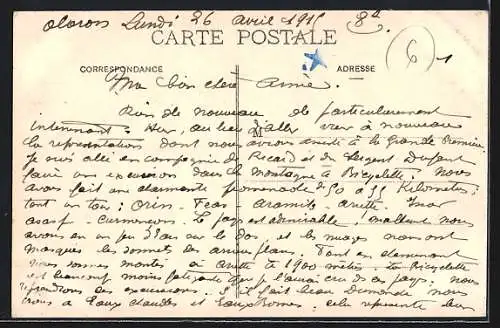 Oloron Lundi 26 avril 1915
CARTE POSTALE
CORRESPONDANCE
ADRESSE
6
Ma bien chère Aimée.
Rien de nouveau de particulièrement
intéressant. Hier, au lieu d'aller voir à nouveau
la représentation dont nous avions assité à la Grande Première
Je suis allé en compagnie de Ricard et du Sergent Dufant
faire une excursion dans la montagne à Bicyclette. Nous
avons fait une charmante promenade de 50 à 55 Kilometres
tout en tas: Orin. Féas Aramits. Arette.
Le pays est admirable; malheut nous
avons eu un peu d'eau sur le dos, et les nuages nous ont
masqués les sommets des arrières plans. Tout en
nous sommes montés à Arette à 1900 mètres. La Bicyclette
est beaucoup moins fatigante que je l'aurai cru dans ces pays. nous
ces excursions. S'il fait beau dimanche nous
irons à Eaux Chaudes et Eaux Bonnes. cela représente